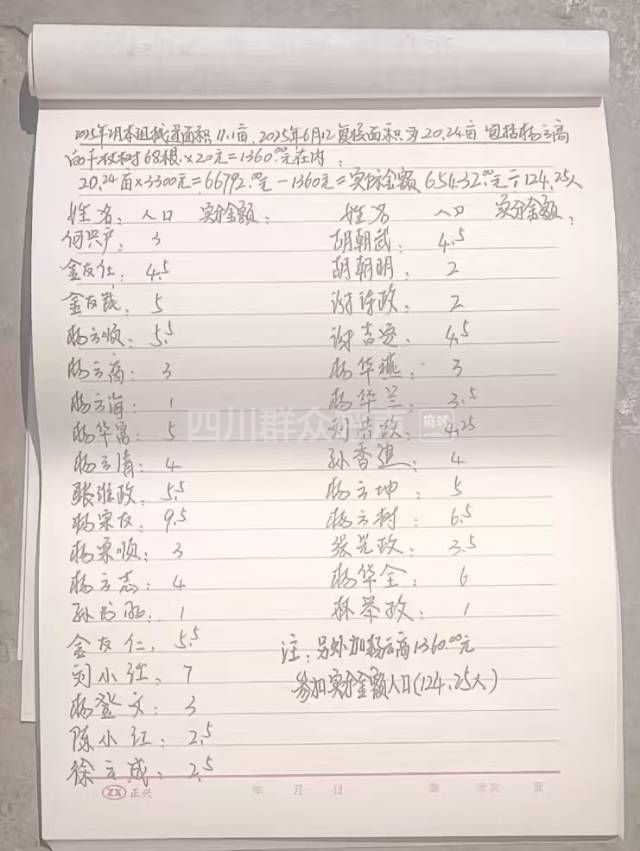 2025年 本组 面积11.1亩，2025年6月12复核面积为20.24亩 包括杨云高
树68根×20元=1360.00元在内。
20.24亩×3300元=66792.00元-1360元=实际金额65432.00元÷124.25人
姓名： 人口 实分金额： 姓名 人口 实分金额：
何兴户： 3 胡朝武： 4.5
金友仁： 4.5 胡朝明： 2
金友 ： 5 谢诗政： 2
杨云顺： 5.5 谢 ： 4.5
杨云高： 3 杨华燕： 3
杨云海： 1 杨华兰： 3.5
杨华富： 5 刘 ： 4.25
杨云清： 4 孙香 ： 4
张维政： 5.5 杨云坤： 5
杨宗友： 9.5 杨云树： 6.5
杨宗顺： 3 张 政： 3.5
杨云志： 4 杨华全： 6
孙 ： 1 林举政： 1
金友仁： 5.5 注：另外加杨云高1360.00元
刘小红： 7 参加实分金额人口(124.25人)
杨登文： 3
陈小红： 2.5
徐云成： 2.5
ZX 正兴 年 月 日 第 页
四川群众 麻辣